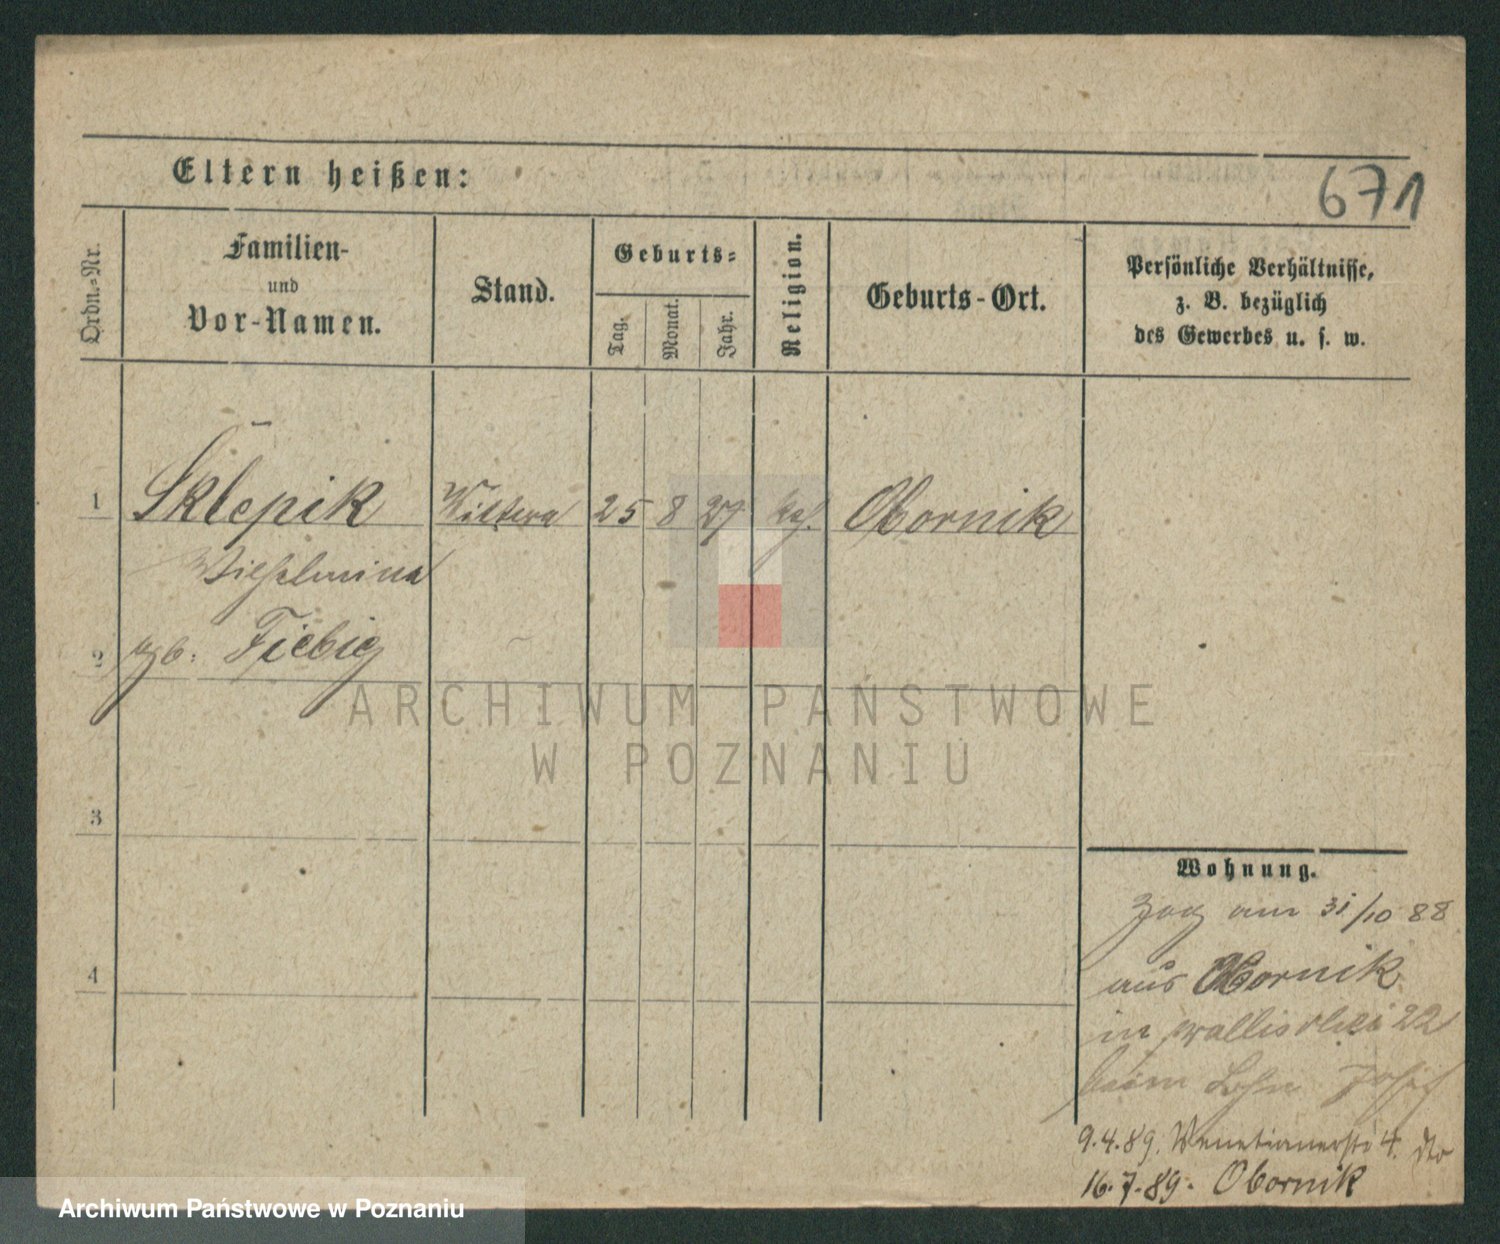 Eltern heißen:
671
Ordn.-Nr.
Familien-
und
Vor-Namen.
Stand.
Geburts-
Tag.
Monat.
Jahr.
Religion.
Geburts-Ort.
Persönliche Verhältnisse,
z. B. bezüglich
des Gewerbes u. s. w.
1 Sklepik Wittwe 25 8 27 kath. Obornik
Wilhelmina
2 geb: Fiebig
3
4
Wohnung.
Zog am 31/10 88
aus Obornik
in Wallischei 22
beim Sohn Josef
9.4.89. Venetianerstr 4. dto
16.7.89. Obornik
ARCHIWUM PAŃSTWOWE
W POZNANIU
Archiwum Państwowe w Poznaniu